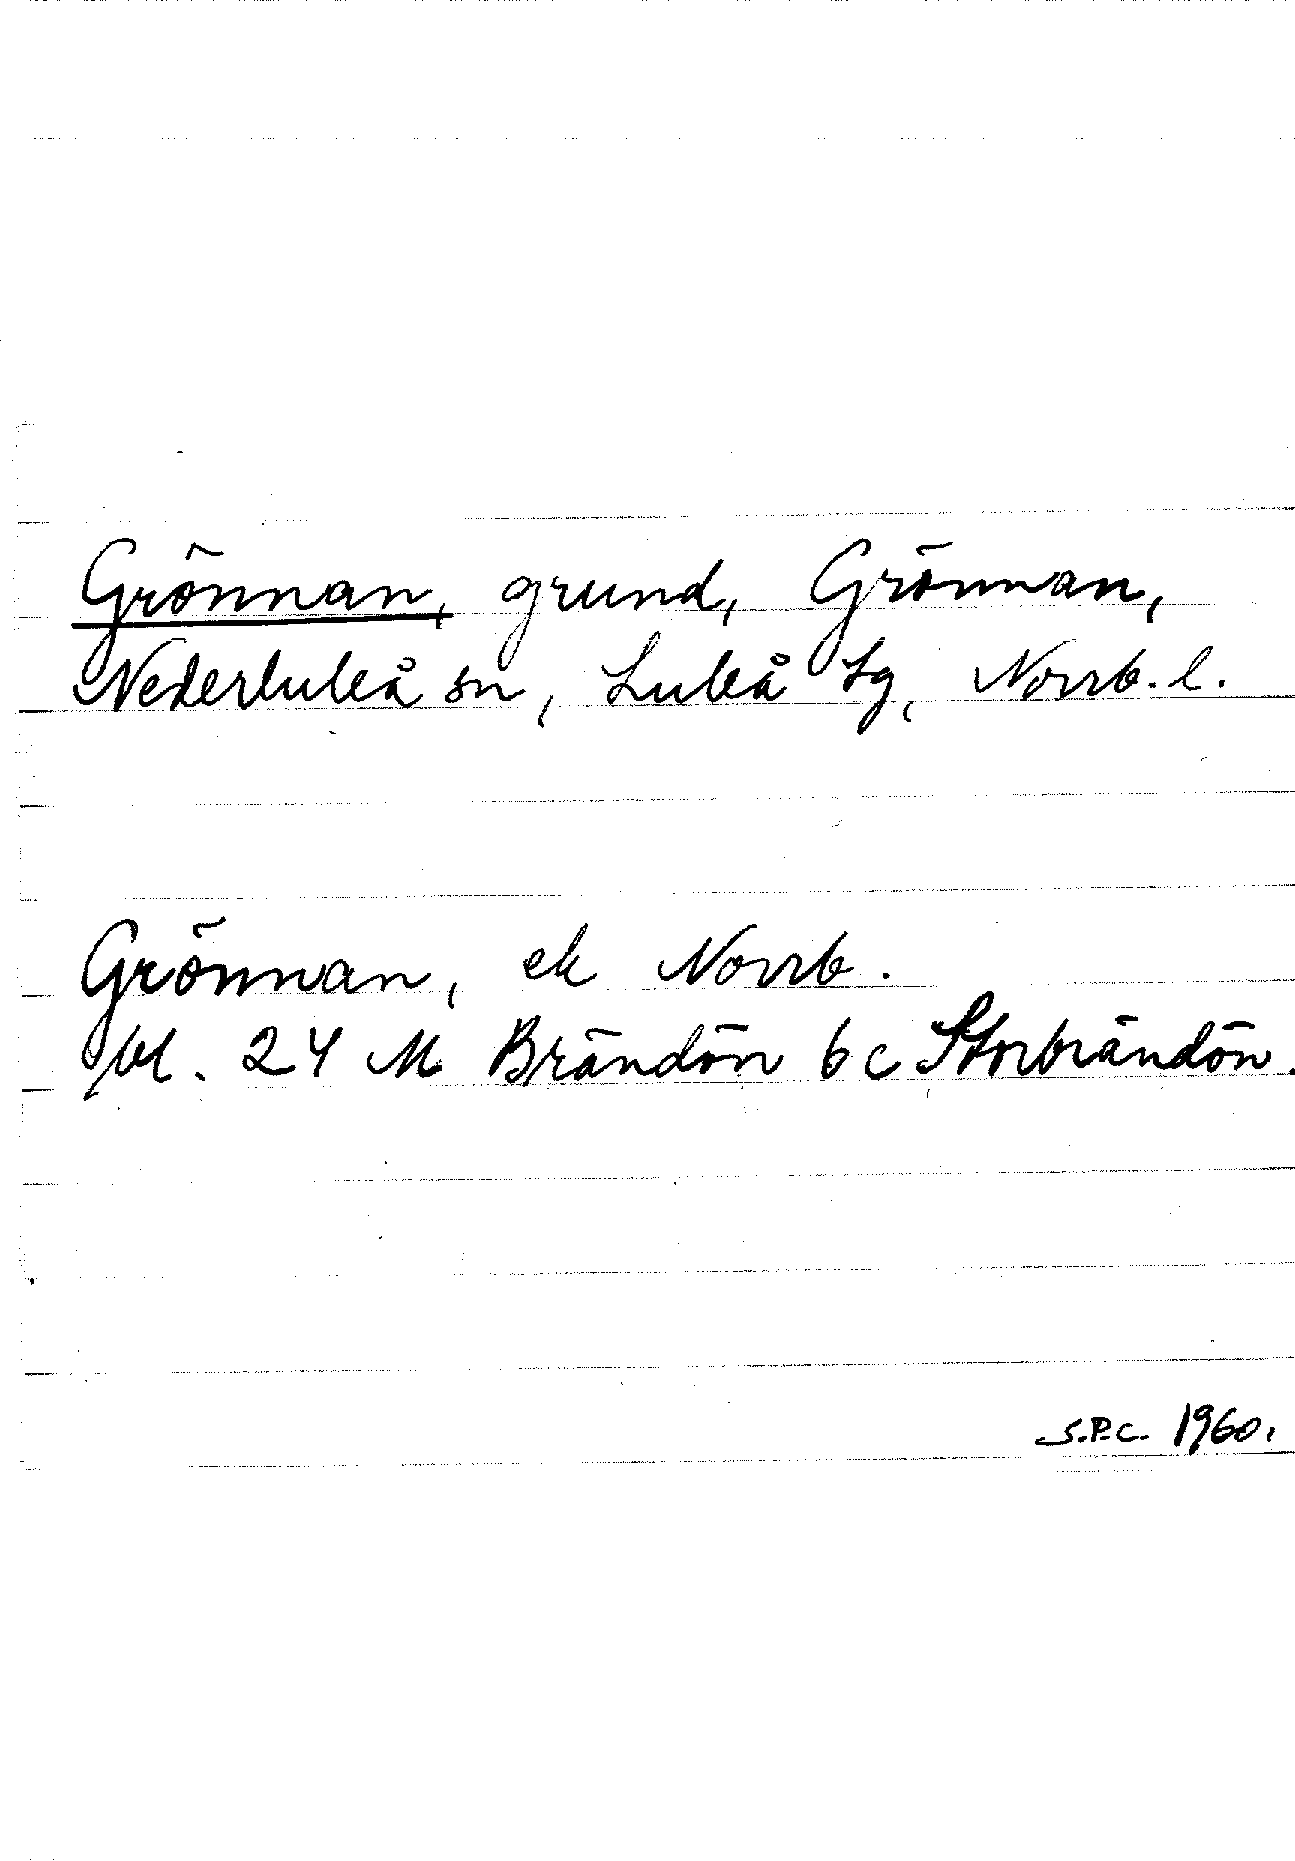 Grönnan, grund, Grönnan,
Nederluleå sn, Luleå tg, Norrb. l.
Grönnan, ek Norrb.
bl. 24 M Brändön 6 c Storbrändön.
S.P.C. 1960.